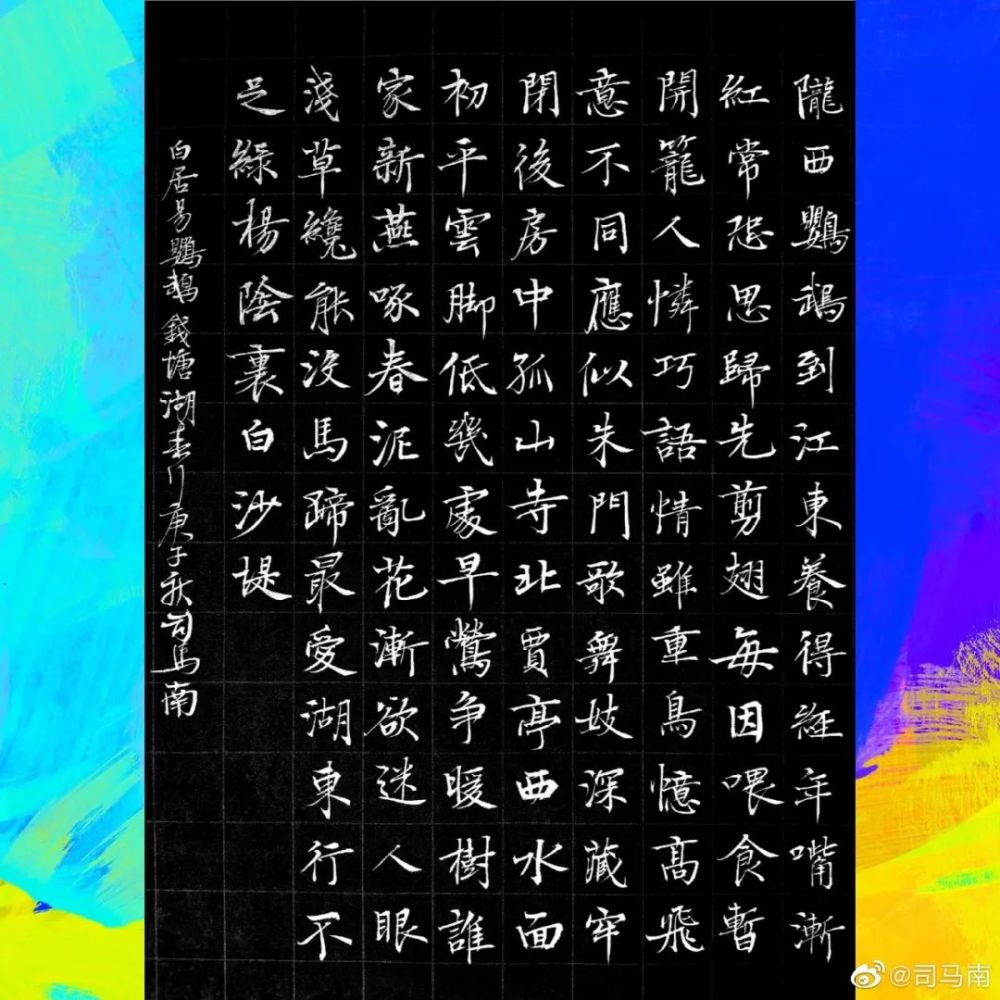 隴西鸚鵡到江東養得經年嘴漸
紅常恐思歸先剪翅每因喂食暫
開籠人憐巧語情雖重鳥憶高飛
意不同應似朱門歌舞妓深藏牢
閉後房中孤山寺北賈亭西水面
初平雲脚低幾處早鶯争暖樹誰
家新燕啄春泥亂花漸欲迷人眼
淺草纔能没馬蹄最愛湖東行不
足綠楊陰裏白沙堤
白居易鸚鵡錢塘湖春行庚子秋司馬南
@司马南